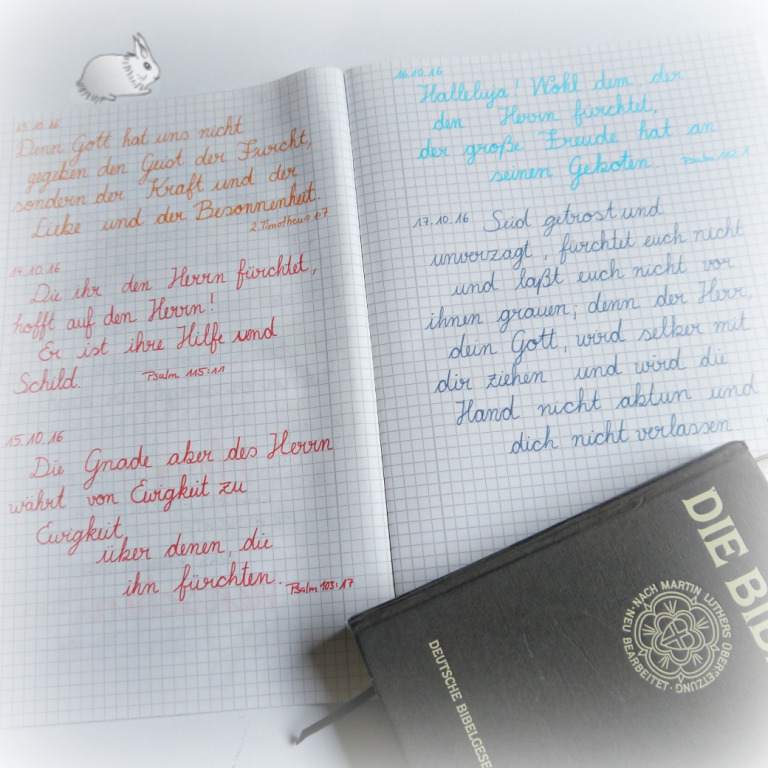 13.10.16
Denn Gott hat uns nicht
gegeben den Geist der Furcht,
sondern der Kraft und der
Liebe und der Besonnenheit.
2. Timotheus 1:7
14.10.16
Die ihr den Herrn fürchtet,
hofft auf den Herrn!
Er ist ihre Hilfe und
Schild. Psalm 115:11
15.10.16
Die Gnade aber des Herrn
währt von Ewigkeit zu
Ewigkeit
über denen, die
ihn fürchten. Psalm 103:17
16.10.16
Halleluja! Wohl dem, der
den Herrn fürchtet,
der große Freude hat an
seinen Geboten. Psalm 112:1
17.10.16 Seid getrost und
unverzagt, fürchtet euch nicht
und laßt euch nicht vor
ihnen grauen; denn der Herr,
dein Gott, wird selber mit
dir ziehen und wird die
Hand nicht abtun und
dich nicht verlassen
DIE BIB
NACH MARTIN LUTHERS ÜBERSETZUNG · NEU BEARBEITET ·
DEUTSCHE BIBELGESE